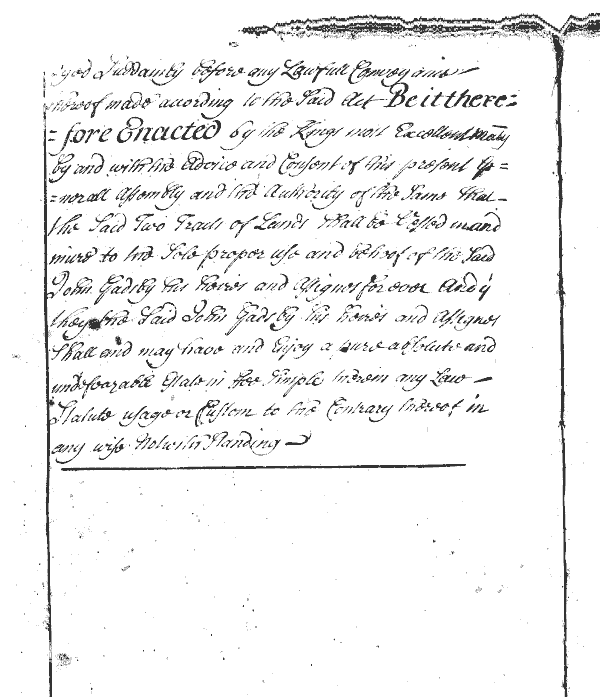 dyed Suddainly before any Lawfull Conveyance
thereof made according to the Said Act Be it there=
=fore Enacted by the Kings most Excellent Maty
by and with the Advice and Consent of this present Ge=
=nerall Assembly and the Authority of the Same that
the Said Two Tracts of Lands Shall be Vested in and
inure to the Sole proper use and behoof of the Said
John Gadsby his heires and Assignes for ever And yt
they the Said John Gadsby his heires and Assignes
Shall and may have and Enjoy a pure absolute and
undefeazable Estate in Fee Simple therein any Law
Statute usage or Custom to the Contrary thereof in
any wise Notwithstanding